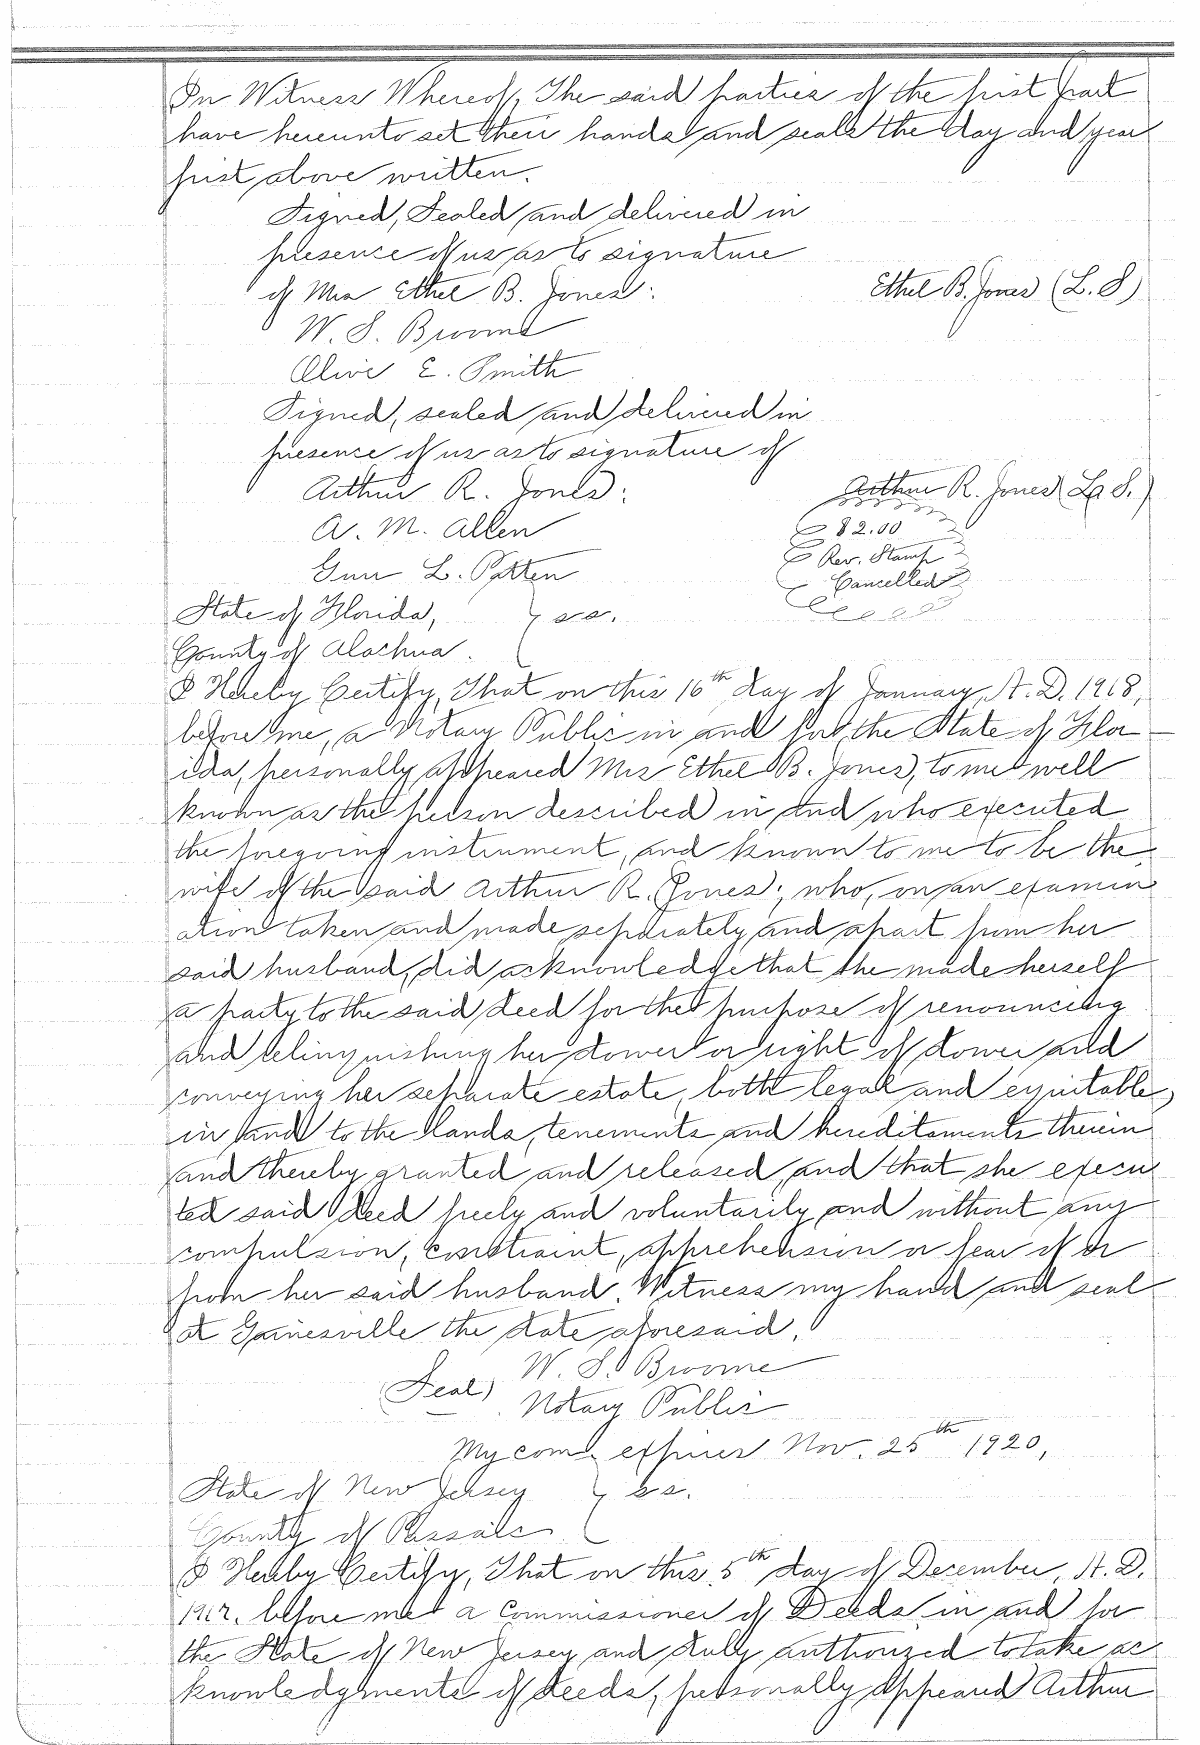 In Witness Whereof, The said parties of the first part
have hereunto set their hands and seals the day and year
first above written.
Signed, Sealed and delivered in
presence of us as to signature
of Mrs Ethel B. Jones:
Ethel B. Jones (L. S)
W. S. Broome
Olive E. Smith
Signed, sealed and delivered in
presence of us as to signature of
Arthur R. Jones:
Arthur R. Jones (L. S.)
A. M. Allen
$2.00
Rev. Stamp
Cancelled
L. Patten
State of Florida,
County of Alachua. } ss.
I Hereby Certify, That on this 16th day of January, A. D. 1918,
before me, a Notary Public in and for the State of Flor-
ida, personally appeared Mrs Ethel B. Jones, to me well
known as the person described in and who executed
the foregoing instrument, and known to me to be the
wife of the said Arthur R. Jones; who, on an examin
ation taken and made separately and apart from her
said husband, did acknowledge that she made herself
a party to the said deed for the purpose of renouncing
and relinquishing her dower or right of dower and
conveying her separate estate, both legal and equitable,
in and to the lands, tenements and hereditaments therein
and thereby granted and released, and that she execu
ted said deed freely and voluntarily and without any
compulsion, constraint, apprehension or fear of or
from her said husband. Witness my hand and seal
at Gainesville the state aforesaid.
(Seal) W. S. Broome
Notary Public
My com. expires Nov. 25th 1920,
State of New Jersey } ss.
County of Passaic
I Hereby Certify, That on this 5th day of December, A. D.
1917, before me a Commissioner of Deeds in and for
the State of New Jersey and duly authorized to take ac
knowledgments of deeds, personally appeared Arthur